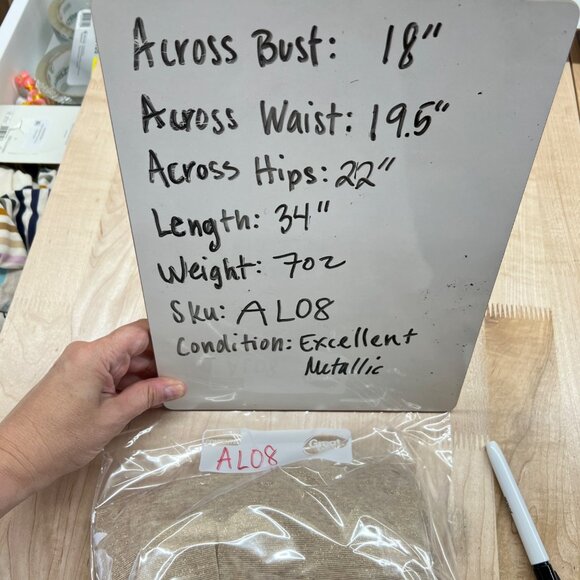 Across Bust: 18"
Across Waist: 19.5"
Across Hips: 22"
Length: 34"
Weight: 7oz
Sku: AL08
Condition: Excellent
Metallic
AL08